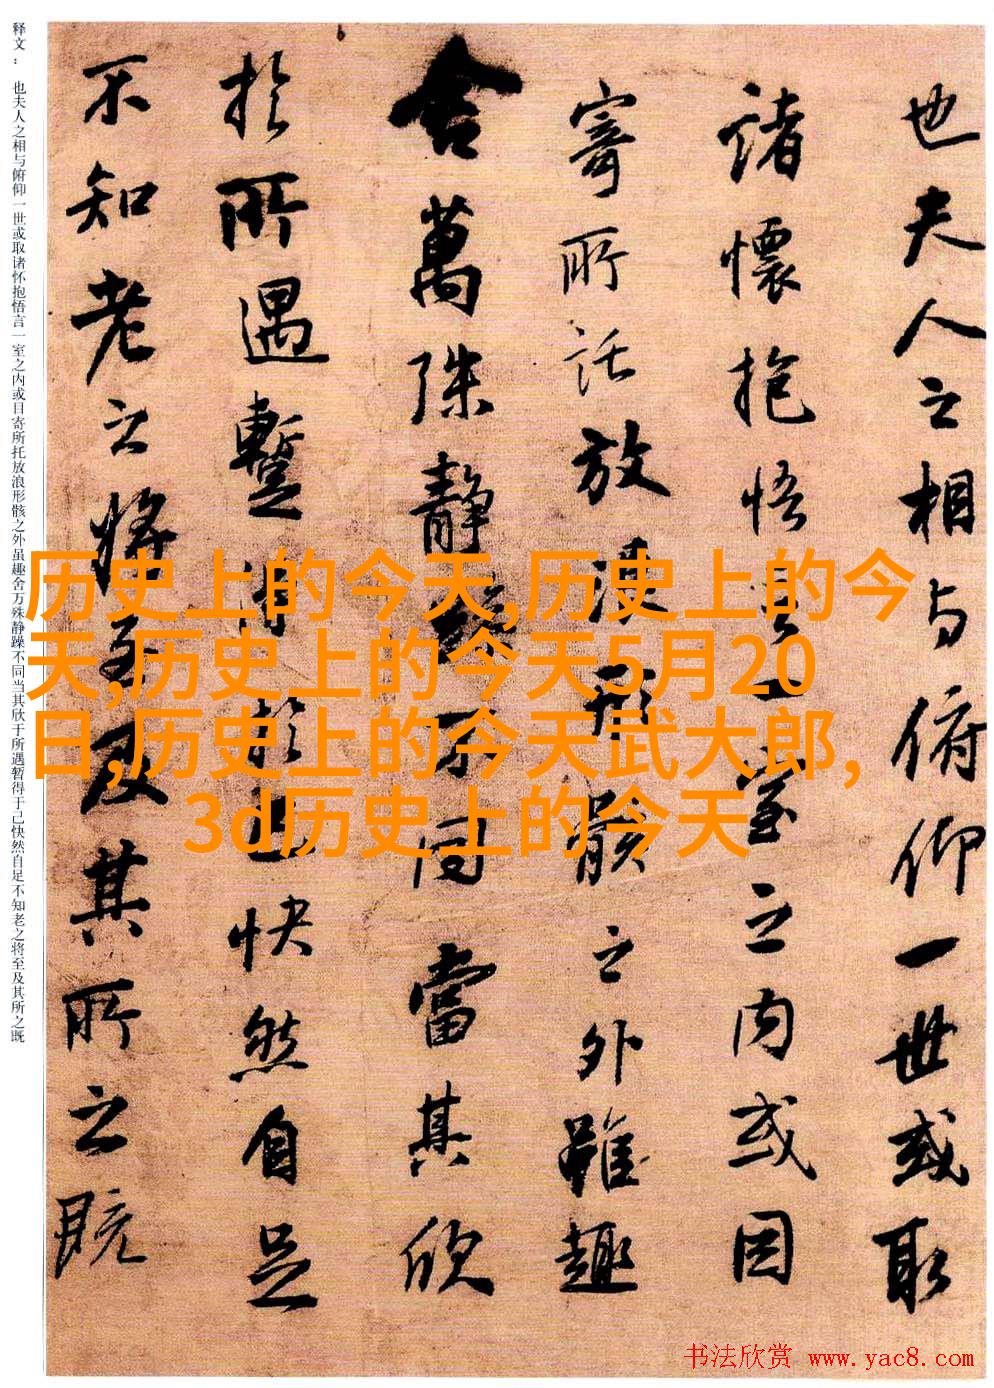 释文： 也夫人之相与俯仰一世或取诸怀抱悟言一室之内或目寄所托放浪形骸之外虽趣舍万殊静躁不同当其欣于所遇暂得于己快然自足不知老之将至及其所之既
也夫人之相与俯仰一世或取
諸懷抱悟言一室之内或因
寄所託放浪形骸之外雖趣
舍萬殊静躁不同當其欣
於所遇暫得於己快然自足
不知老之将至及其所之既
历史上的今天,历史上的今
天,历史上的今天5月20
日,历史上的今天武大郎,
3d历史上的今天
书法欣赏 www.yac8.com